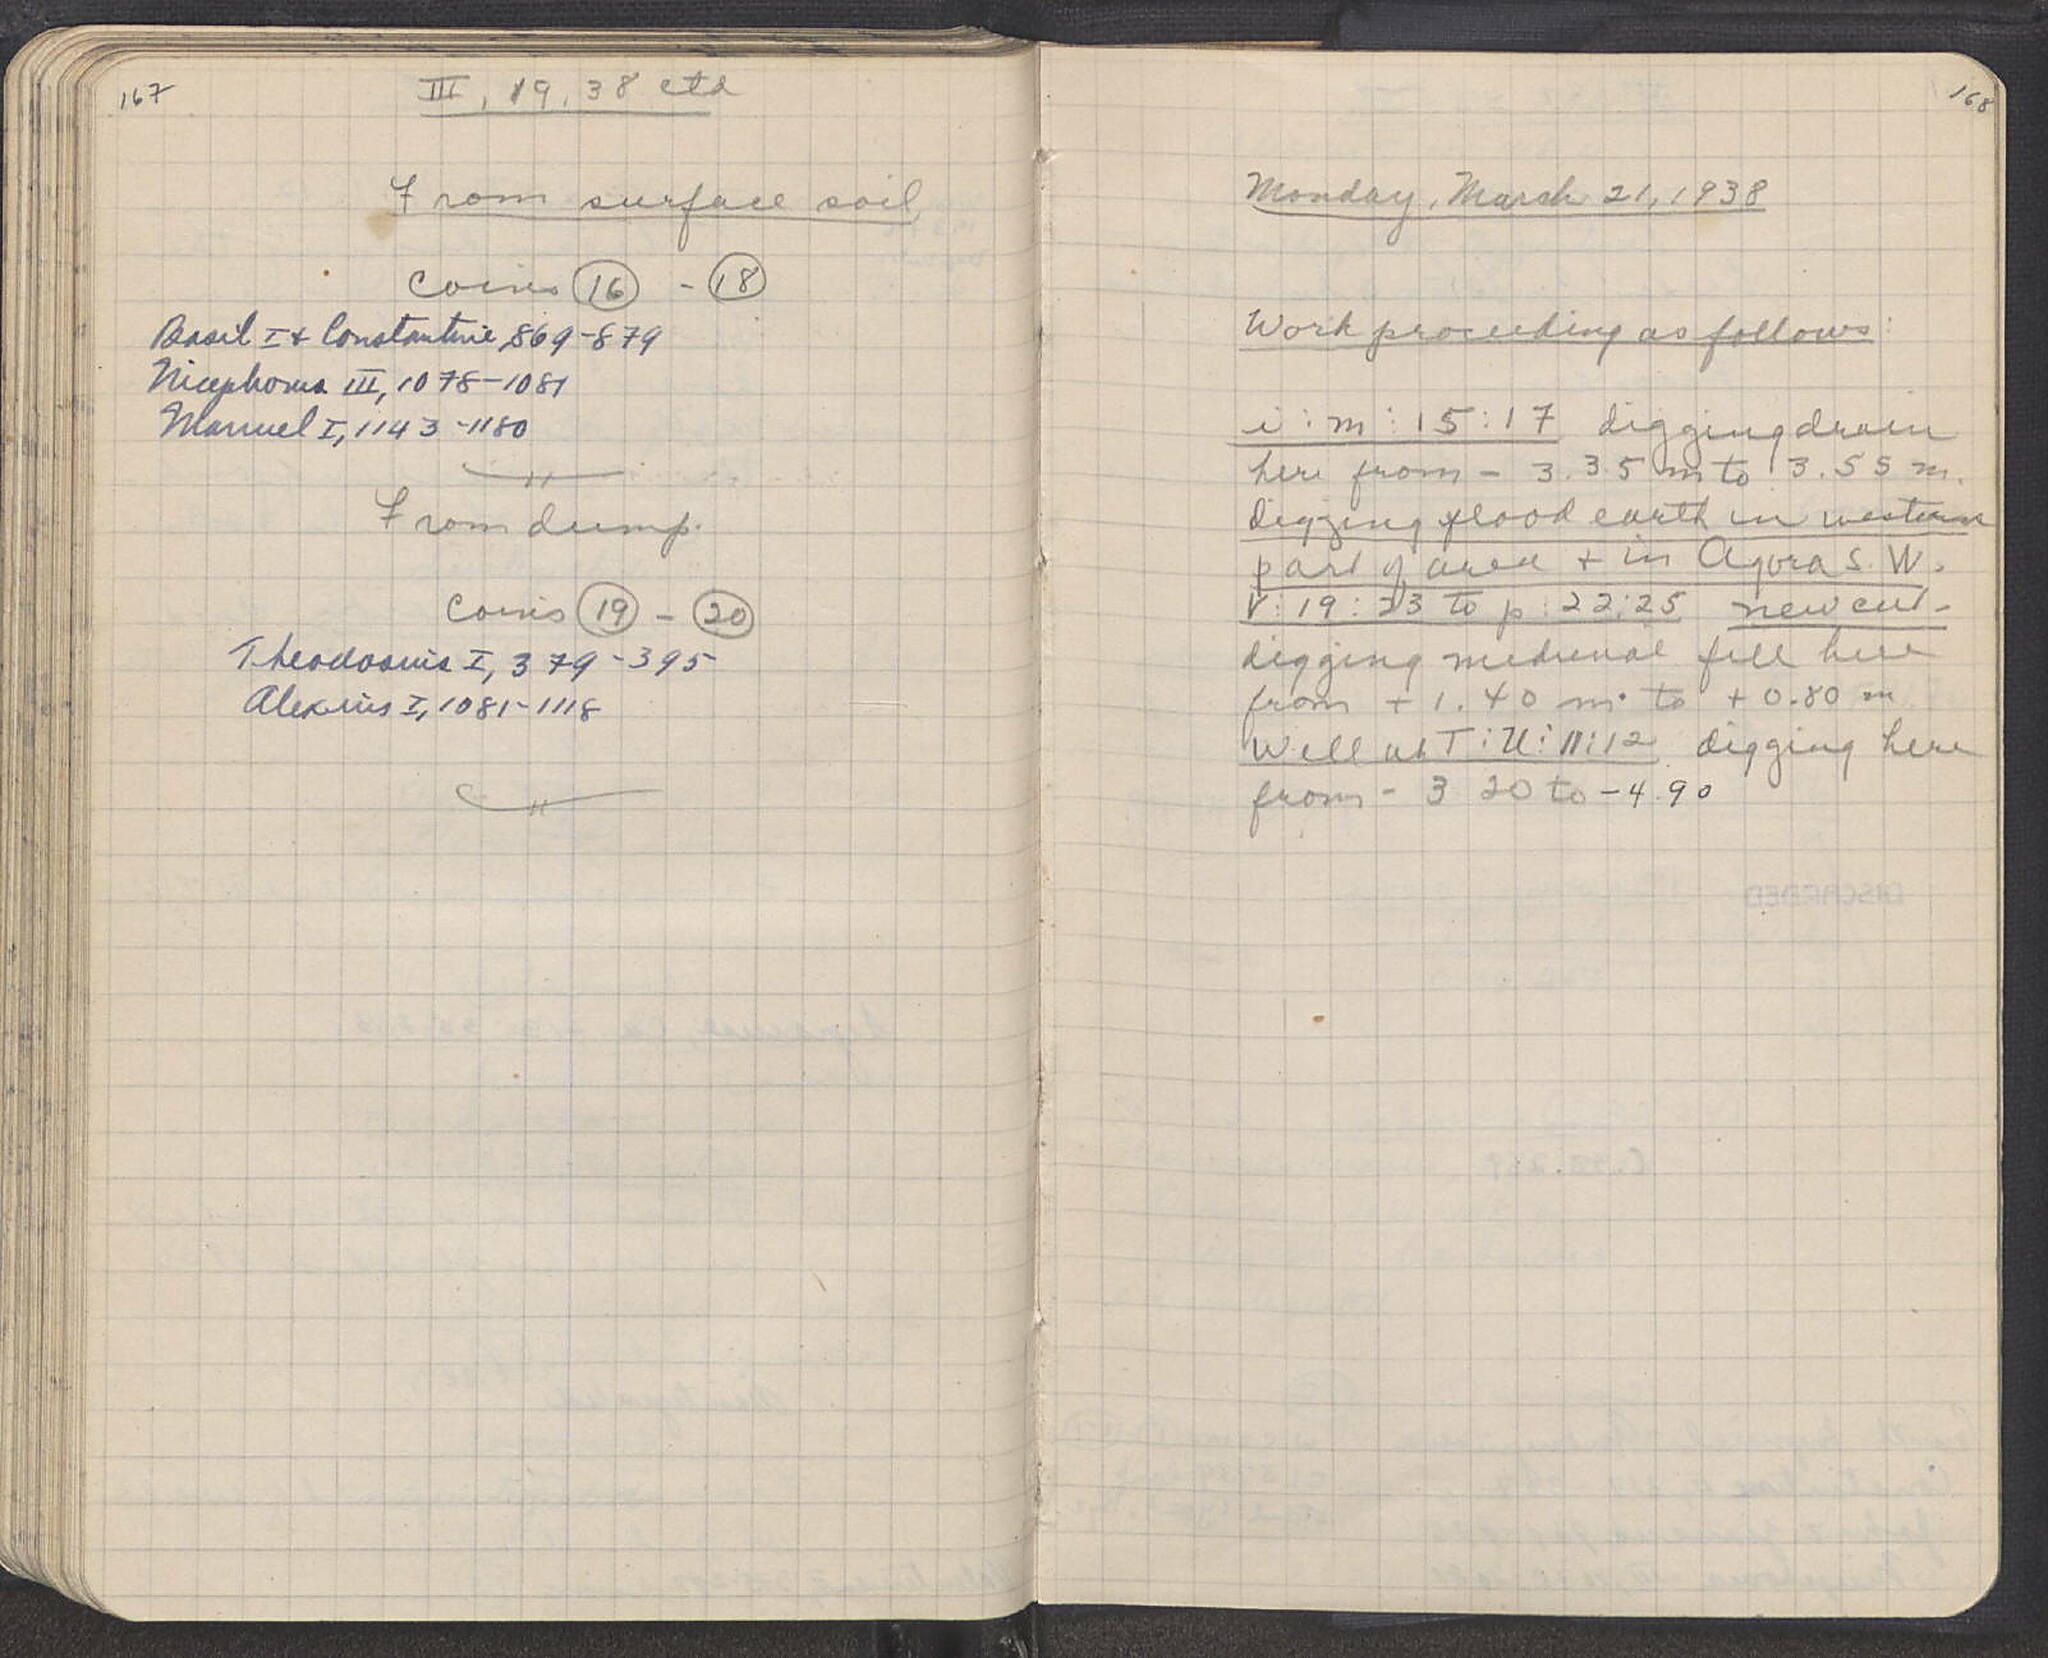 167
III, 19, 38 ctd
From surface soil
Coins 16 - 18
Basil I + Constantine, 869-879
Nicephorus III, 1078-1081
Manuel I, 1143-1180
From dump.
Coins 19 - 20
Theodosius I, 379-395
Alexius I, 1081-1118
168
Monday, March 21, 1938
Work proceeding as follows:
i:m:15:17 digging drain
here from - 3.35 m to 3.55 m.
Digging flood earth in western
part of area + in Agora S.W.
V:19:23 to p:22:25 new cut-
digging medieval fill here
from + 1.40 m. to + 0.80 m
Well at T:U:11:12 digging here
from - 3 20 to - 4.90
DISCARDED